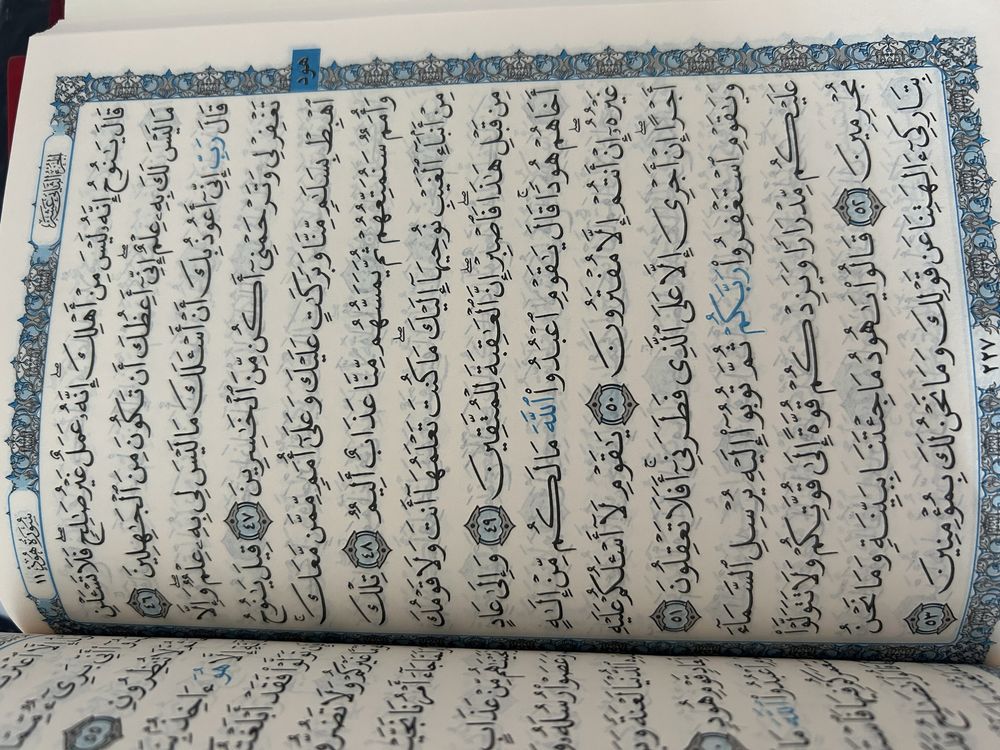 الجزء الثاني عشر
سورة هود ١١
هود
قَالَ يَٰنُوحُ إِنَّهُۥ لَيْسَ مِنْ أَهْلِكَۖ إِنَّهُۥ عَمَلٌ غَيْرُ صَٰلِحٖۖ فَلَا تَسْـَٔلْنِ
مَا لَيْسَ لَكَ بِهِۦ عِلْمٌۖ إِنِّيٓ أَعِظُكَ أَن تَكُونَ مِنَ ٱلْجَٰهِلِينَ ٤٦
قَالَ رَبِّ إِنِّيٓ أَعُوذُ بِكَ أَنْ أَسْـَٔلَكَ مَا لَيْسَ لِي بِهِۦ عِلْمٌۖ وَإِلَّا
تَغْفِرْ لِي وَتَرْحَمْنِيٓ أَكُن مِّنَ ٱلْخَٰسِرِينَ ٤٧ قِيلَ يَٰنُوحُ
ٱهْبِطْ بِسَلَٰمٖ مِّنَّا وَبَرَكَٰتٍ عَلَيْكَ وَعَلَىٰٓ أُمَمٖ مِّمَّن مَّعَكَۚ
وَأُمَمٞ سَنُمَتِّعُهُمْ ثُمَّ يَمَسُّهُم مِّنَّا عَذَابٌ أَلِيمٞ ٤٨ تِلْكَ
مِنْ أَنۢبَآءِ ٱلْغَيْبِ نُوحِيهَآ إِلَيْكَۖ مَا كُنتَ تَعْلَمُهَآ أَنتَ وَلَا قَوْمُكَ
مِن قَبْلِ هَٰذَاۖ فَٱصْبِرْۖ إِنَّ ٱلْعَٰقِبَةَ لِلْمُتَّقِينَ ٤٩ وَإِلَىٰ عَادٍ
أَخَاهُمْ هُودٗاۚ قَالَ يَٰقَوْمِ ٱعْبُدُوا۟ ٱللَّهَ مَا لَكُم مِّنْ إِلَٰهٍ
غَيْرُهُۥٓۖ إِنْ أَنتُمْ إِلَّا مُفْتَرُونَ ٥٠ يَٰقَوْمِ لَآ أَسْـَٔلُكُمْ عَلَيْهِ
أَجْرًاۖ إِنْ أَجْرِيَ إِلَّا عَلَى ٱلَّذِي فَطَرَنِيٓۚ أَفَلَا تَعْقِلُونَ ٥١
وَيَٰقَوْمِ ٱسْتَغْفِرُوا۟ رَبَّكُمْ ثُمَّ تُوبُوٓا۟ إِلَيْهِ يُرْسِلِ ٱلسَّمَآءَ
عَلَيْكُم مِّدْرَارٗا وَيَزِدْكُمْ قُوَّةً إِلَىٰ قُوَّتِكُمْ وَلَا تَتَوَلَّوْا۟
مُجْرِمِينَ ٥٢ قَالُوا۟ يَٰهُودُ مَا جِئْتَنَا بِبَيِّنَةٖ وَمَا نَحْنُ
بِتَارِكِيٓ ءَالِهَتِنَا عَن قَوْلِكَ وَمَا نَحْنُ لَكَ بِمُؤْمِنِينَ ٥٣
٢٢٧